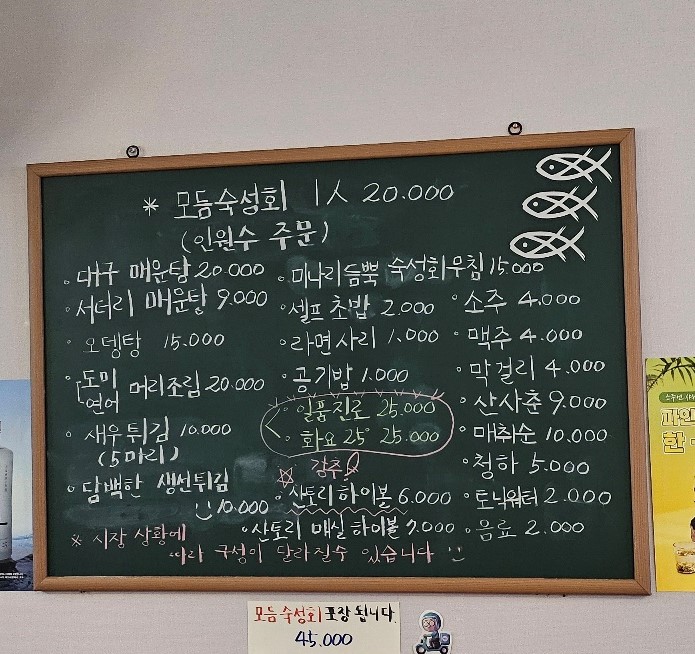 * 모듬숙성회 1人 20.000
(인원수 주문)
· 대구 매운탕 20.000
· 서더리 매운탕 9.000
· 오뎅탕 15.000
· 도미
연어 머리조림 20.000
· 새우튀김 10.000
(5마리)
· 담백한 생선튀김
10.000
· 미나리듬뿍 숙성회무침 15.000
· 셀프초밥 2.000
· 라면사리 1.000
· 공기밥 1.000
· 일품진로 25.000
· 화요 25° 25.000
강추
· 산토리하이볼 6.000
· 산토리 매실하이볼 7.000
· 소주 4.000
· 맥주 4.000
· 막걸리 4.000
· 산사춘 9.000
· 매취순 10.000
· 청하 5.000
· 토닉워터 2.000
· 음료 2.000
※ 시장 상황에
따라 구성이 달라질수 있습니다
모듬숙성회 포장 됩니다.
45.000